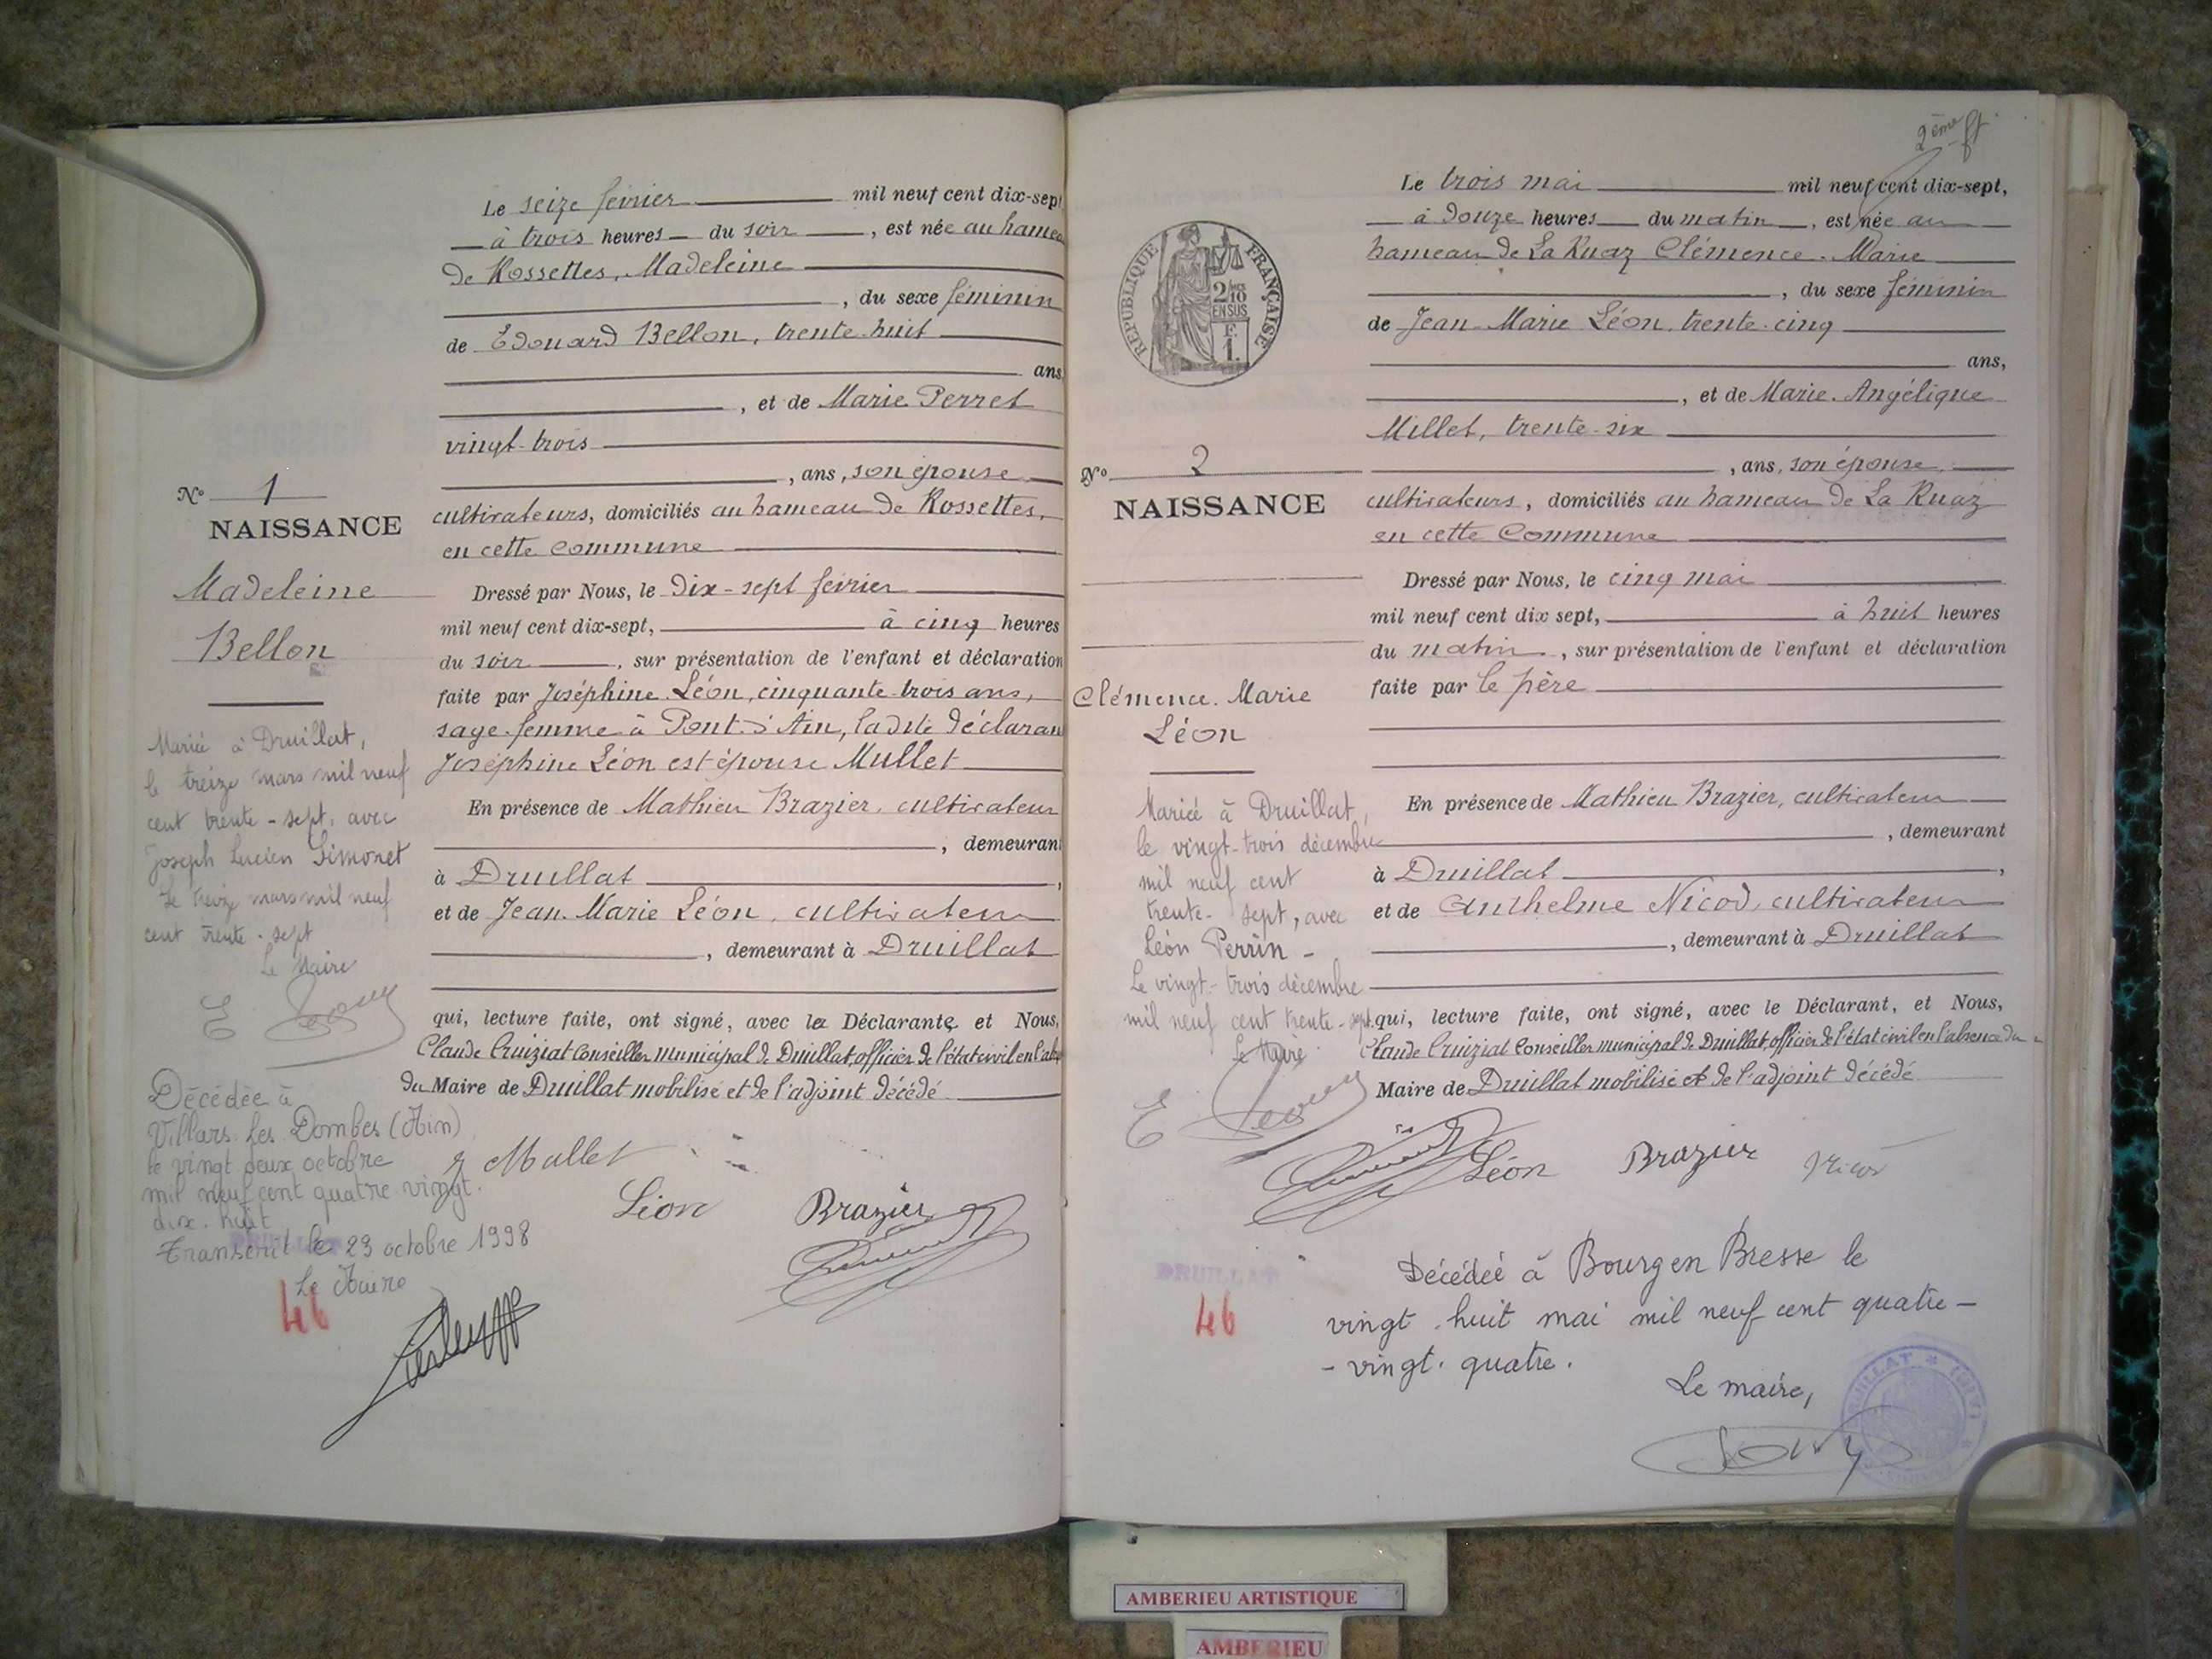 Le seize février mil neuf cent dix-sept
à trois heures du soir, est née au hameau
de Rossettes, Madeleine
, du sexe féminin
de Edouard Bellon, trente-huit
ans
, et de Marie Perret
vingt-trois
, ans, son épouse
cultivateurs, domiciliés au hameau de Rossettes,
en cette commune
Dressé par Nous, le Dix-sept février
mil neuf cent dix-sept, à cinq heures
du soir, sur présentation de l'enfant et déclaration
faite par Joséphine Léon, cinquante-trois ans,
sage-femme à Pont-d'Ain, ladite déclaran
Joséphine Léon est épouse Mullet
En présence de Mathieu Brazier, cultivateur
, demeuran
à Druillat,
et de Jean-Marie Léon, cultivateur
, demeurant à Druillat
qui, lecture faite, ont signé, avec la Déclarante et Nous,
Claude Cruiziat Conseiller municipal de Druillat, officier de l'état civil en l'abs
du Maire de Druillat mobilisé et de l'adjoint décédé
Mullet
Léon
Brazier
No 1
NAISSANCE
Madeleine
Bellon
Mariée à Druillat,
le treize mars mil neuf
cent trente-sept, avec
Joseph Lucien Simonet
Le treize mars mil neuf
cent trente-sept
Le Maire
Décédée à
Villars les Dombes (Ain)
le vingt deux octobre
mil neuf cent quatre vingt.
dix. huit
Transcrit le 23 octobre 1998
Le Maire
DRUILLAT
46
2ème ft
Le trois mai mil neuf cent dix-sept,
à douze heures du matin, est née au
hameau de La Ruaz Clémence-Marie
, du sexe féminin
de Jean-Marie Léon, trente-cinq
ans,
, et de Marie-Angélique
Millet, trente-six
, ans, son épouse,
cultivateurs, domiciliés au hameau de La Ruaz
en cette Commune
Dressé par Nous, le cinq mai
mil neuf cent dix sept, à huit heures
du matin, sur présentation de l'enfant et déclaration
faite par le père
En présence de Mathieu Brazier, cultivateur
, demeurant
à Druillat,
et de Anthelme Nicod, cultivateur
, demeurant à Druillat
qui, lecture faite, ont signé, avec le Déclarant, et Nous,
Claude Cruiziat Conseiller municipal de Druillat, officier de l'état civil en l'absence du
Maire de Druillat mobilisé et de l'adjoint décédé
Léon Brazier Nicod
RÉPUBLIQUE FRANÇAISE
2/10
EN SUS
F.
1.
No 2
NAISSANCE
Clémence-Marie
Léon
Mariée à Druillat,
le vingt-trois décembre
mil neuf cent
trente-sept, avec
Léon Perrin -
Le vingt-trois décembre
mil neuf cent trente-sept.
Le Maire
DRUILLAT
46
Décédée à Bourg en Bresse le
vingt-huit mai mil neuf cent quatre-
-vingt-quatre.
Le maire,
DRUILLAT * (AIN) *
AMBERIEU ARTISTIQUE
AMBERIEU